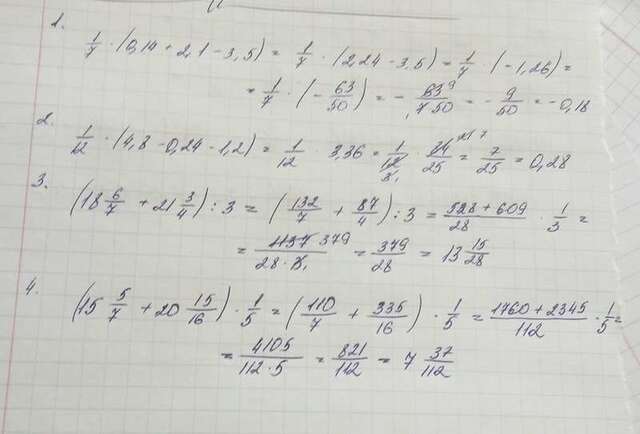 1.
1/7 · (0,14 + 2,1 - 3,5) = 1/7 · (2,24 - 3,5) = 1/7 · (-1,26) =
= 1/7 · (- 63/50) = - 63 9/1 7 50 = - 9/50 = -0,18
2.
1/12 · (4,8 - 0,24 - 1,2) = 1/12 · 3,36 = 1/12 · 84/25 = 7/25 = 0,28
3.
(18 6/7 + 21 3/4) : 3 = (132/7 + 87/4) : 3 = 528 + 609/28 · 1/3 =
= 1137 379/28 · 3 1 = 379/28 = 13 15/28
4.
(15 5/7 + 20 15/16) · 1/5 = (110/7 + 335/16) · 1/5 = 1760 + 2345/112 · 1/5 =
= 4105/112 · 5 = 821/112 = 7 37/112